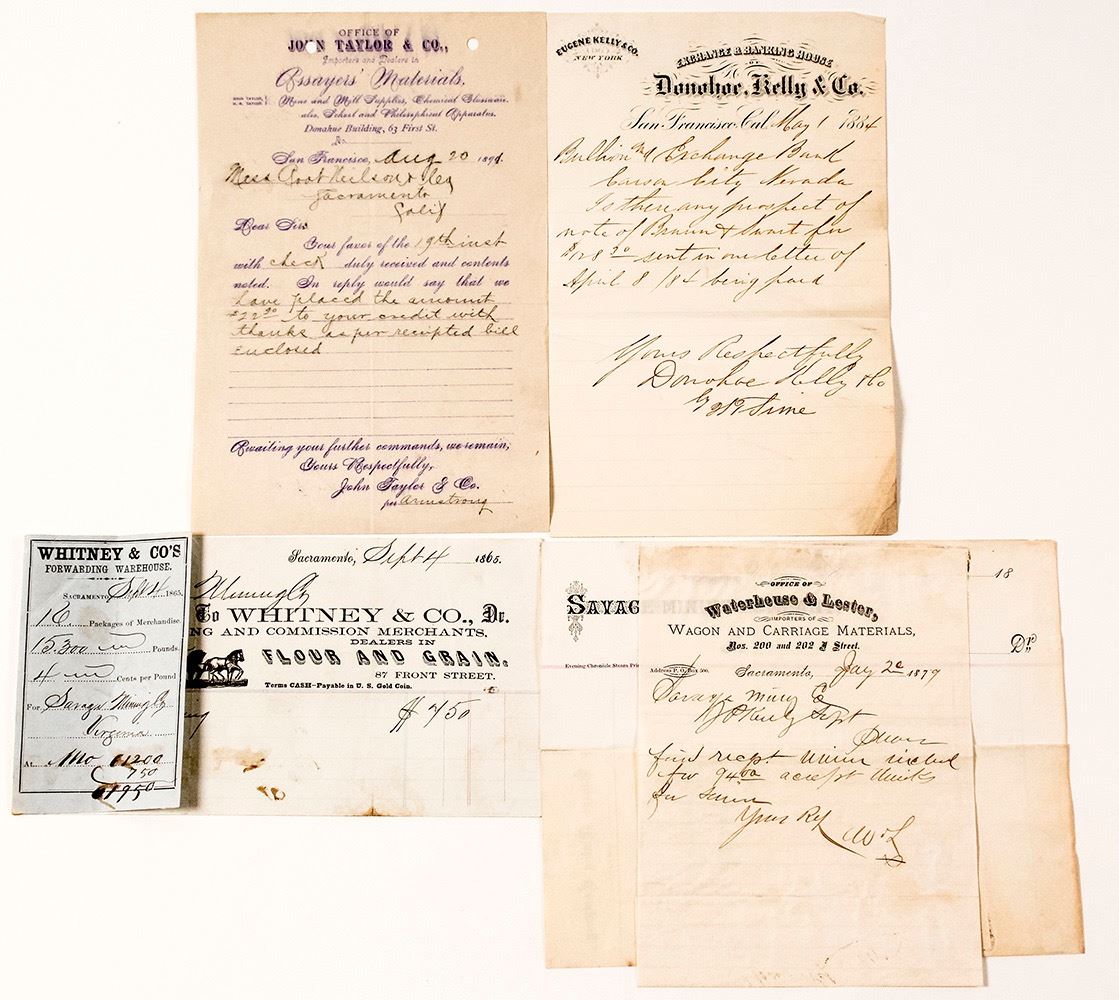 OFFICE OF
JOHN TAYLOR & CO.,
Importers and Dealers in
Assayers' Materials,
JOHN TAYLOR,
H. R. TAYLOR
Mine and Mill Supplies, Chemical Glassware
als, School and Philosophical Apparatus.
Donahue Building, 63 First St.
No.
San Francisco, Aug 20 189
Mess
Sacramento
Calif
Dear Sirs
Your favor of the 19th inst
with check duly received and contents
noted. In reply would say that we
have placed the amount
$22 to your credit with
thanks as per receipted bill
enclosed
Awaiting your further commands, we remain,
Yours Respectfully,
John Taylor & Co.
per Armstrong
EUGENE KELLY & CO.
NEW YORK
EXCHANGE & BANKING HOUSE
OF
Donohoe, Kelly & Co.
San Francisco, Cal. May 1 1884
Bullion and Exchange Bank
Carson City, Nevada
Is there any prospect of
note of Braun & for
sent in our letter of
April 8 /84 being paid
Yours Respectfully
Donohoe Kelly & Co
WHITNEY & CO'S
FORWARDING WAREHOUSE.
SACRAMENTO, Sept 4 1865.
16 Packages of Merchandise.
15.300 Pounds.
4 Cents per Pound
For Savage Mining Co
Virginia
At
612.00
7.50
619.50
Sacramento, Sept 4 1865.
Mining Co
To WHITNEY & CO., Dr.
NG AND COMMISSION MERCHANTS,
DEALERS IN
FLOUR AND GRAIN.
87 FRONT STREET.
Terms CASH—Payable in U. S. Gold Coin.
$ 7.50
SAVAG
18
Dr.
Evening Chronicle Steam Pri
OFFICE OF
Waterhouse & Lester,
IMPORTERS OF
WAGON AND CARRIAGE MATERIALS,
Nos. 200 and 202 J Street.
Address P. O. Box 500.
Sacramento, Jany 2 1879
Savage Mining Co
Supt
find recpt
for 94 accept thanks
for same
Yours Rsp
W & L